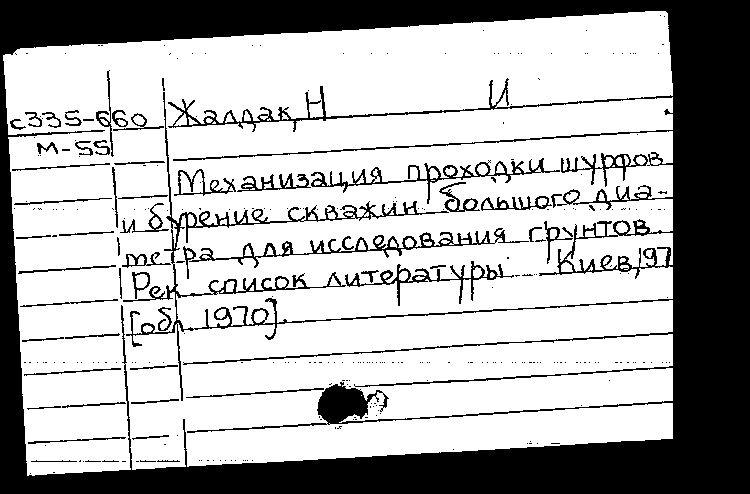 с335-660 Жалдак, Н И
М-55
Механизация проходки шурфов
и бурение скважин большого диа-
метра для исследования грунтов.
Рек. список литературы Киев, 197
[обл. 1970].